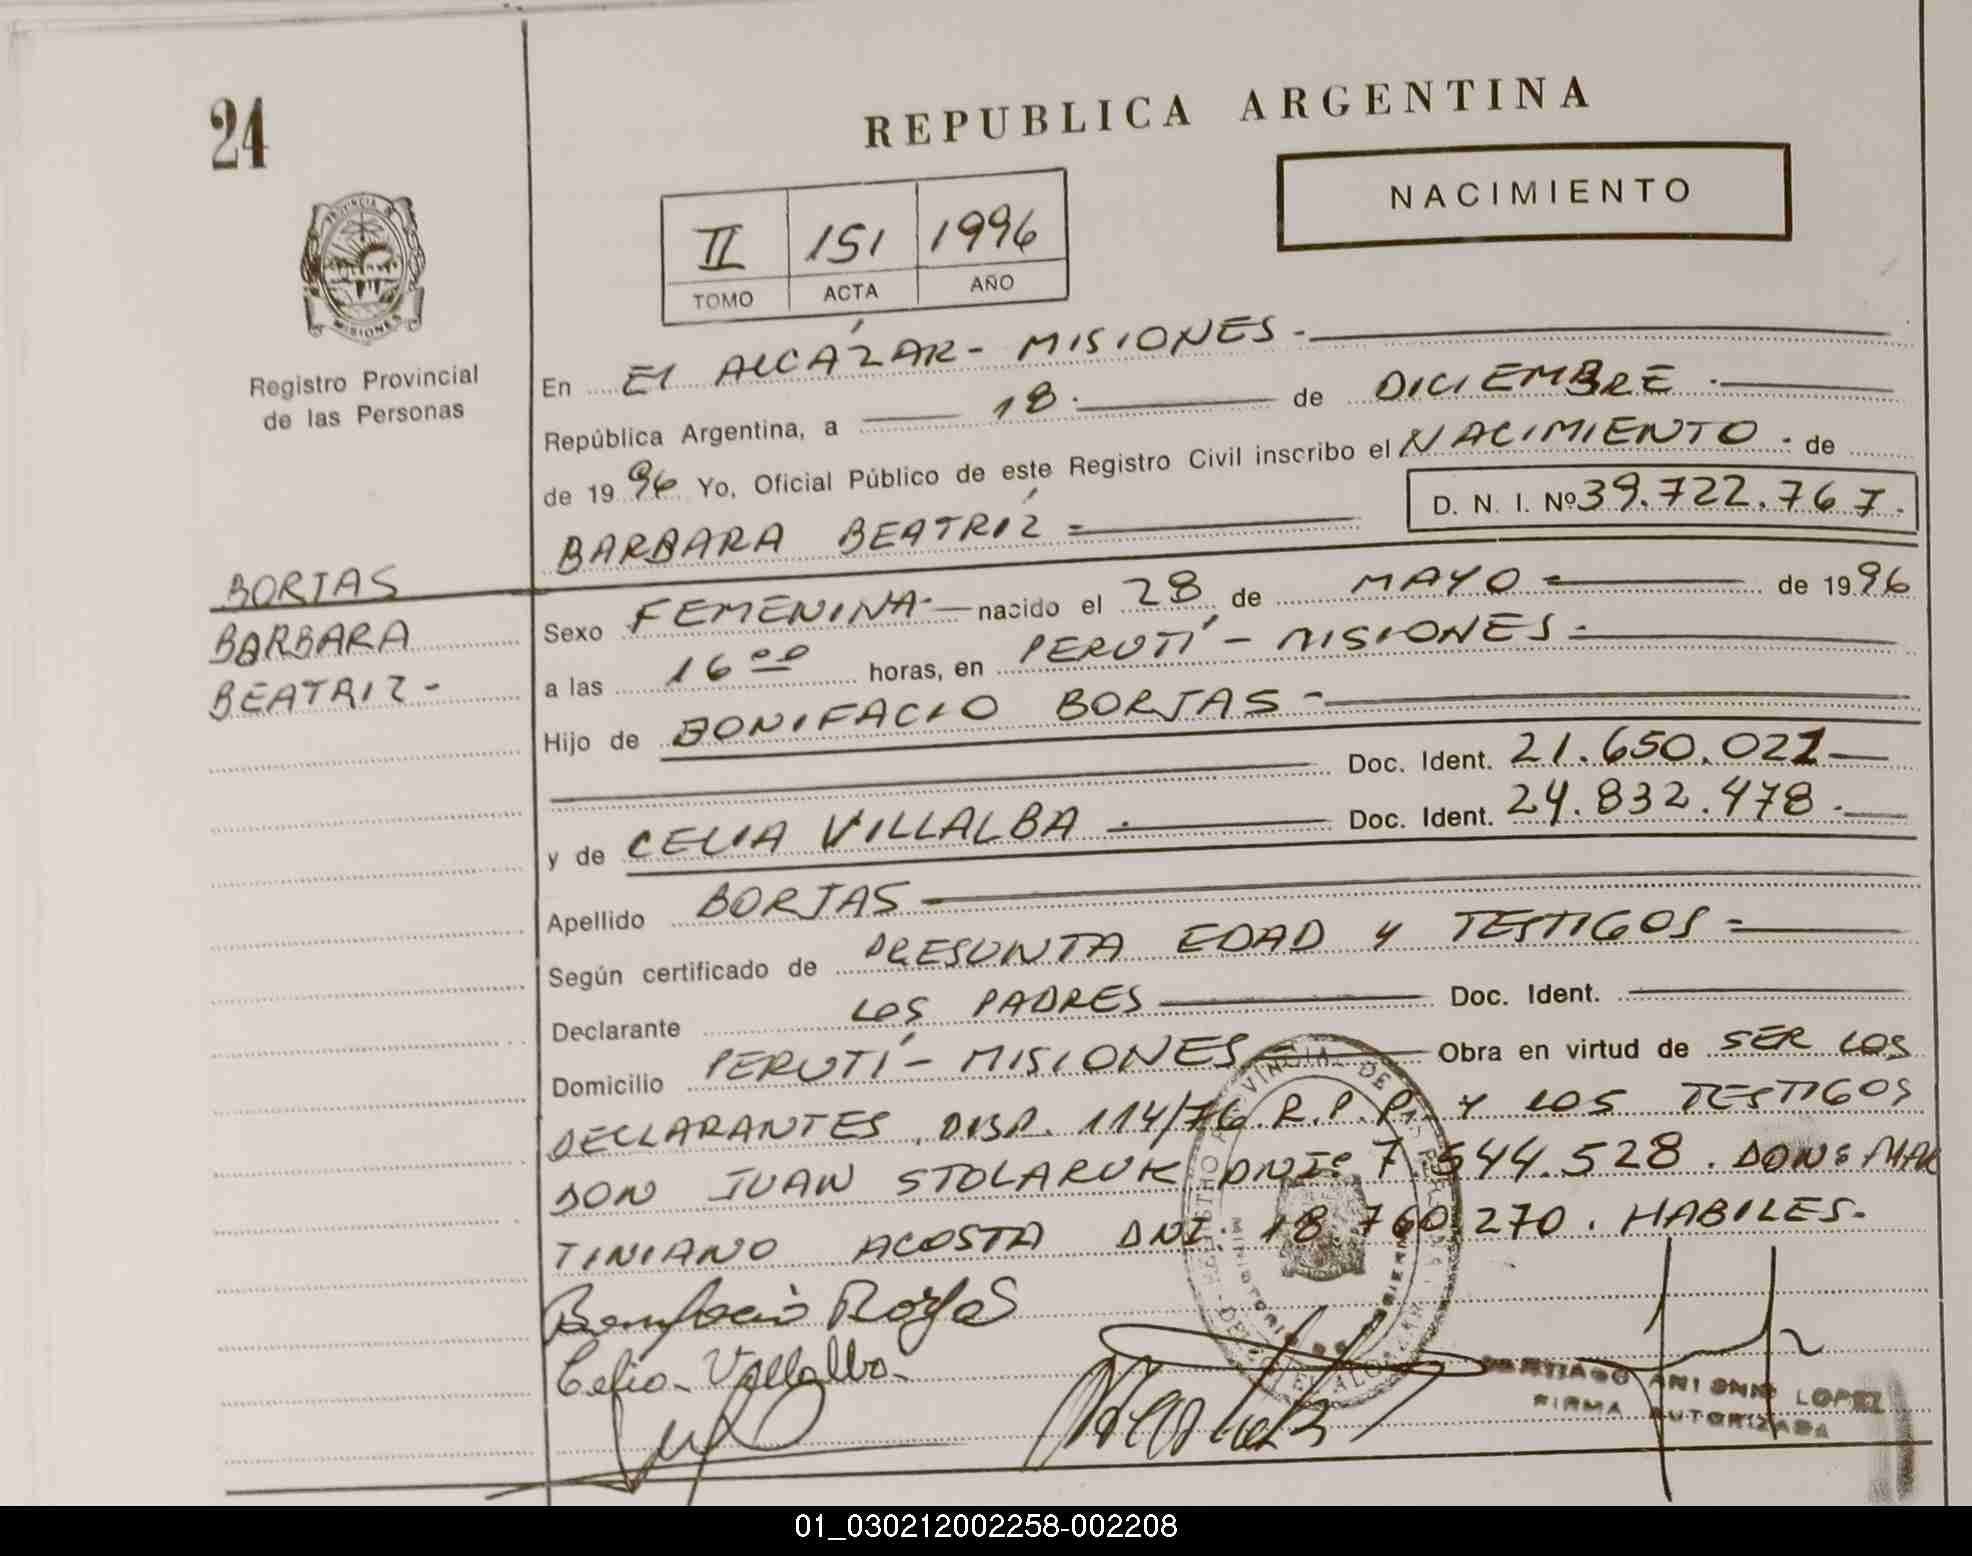 24
REPUBLICA ARGENTINA
NACIMIENTO
II 151 1996
TOMO ACTA AÑO
PROVINCIA DE
MISIONES
Registro Provincial
de las Personas
En El ALCÁZAR - MISIONES -
República Argentina, a 18. de DICIEMBRE.
de 1996 Yo, Oficial Público de este Registro Civil inscribo el NACIMIENTO. de
BARBARA BEATRÍZ = D. N. I. Nº 39.722.767.
BORJAS
BARBARA
BEATRIZ -
Sexo FEMENINA - nacido el 28 de MAYO = de 1996
a las 16 00 horas, en PERUTÍ - MISIONES =
Hijo de BONIFACIO BORJAS -
Doc. Ident. 21.650.021
y de CELIA VILLALBA . Doc. Ident. 24.832.478.
Apellido BORJAS
Según certificado de PRESUNTA EDAD y TESTIGOS =
Declarante LOS PADRES Doc. Ident.
Domicilio PERUTÍ - MISIONES Obra en virtud de SER LOS
DECLARANTES. DISP. 114/76 R.P.P. Y LOS TESTIGOS
DON JUAN STOLARUK DNIº 7.544.528. DON: MAR
TINIANO ACOSTA DNI. 18.760.270. HABILES.
Bonifacio Borjas
Celia Villalba
SANTIAGO ANTONIO LOPEZ
FIRMA AUTORIZADA
01_030212002258-002208